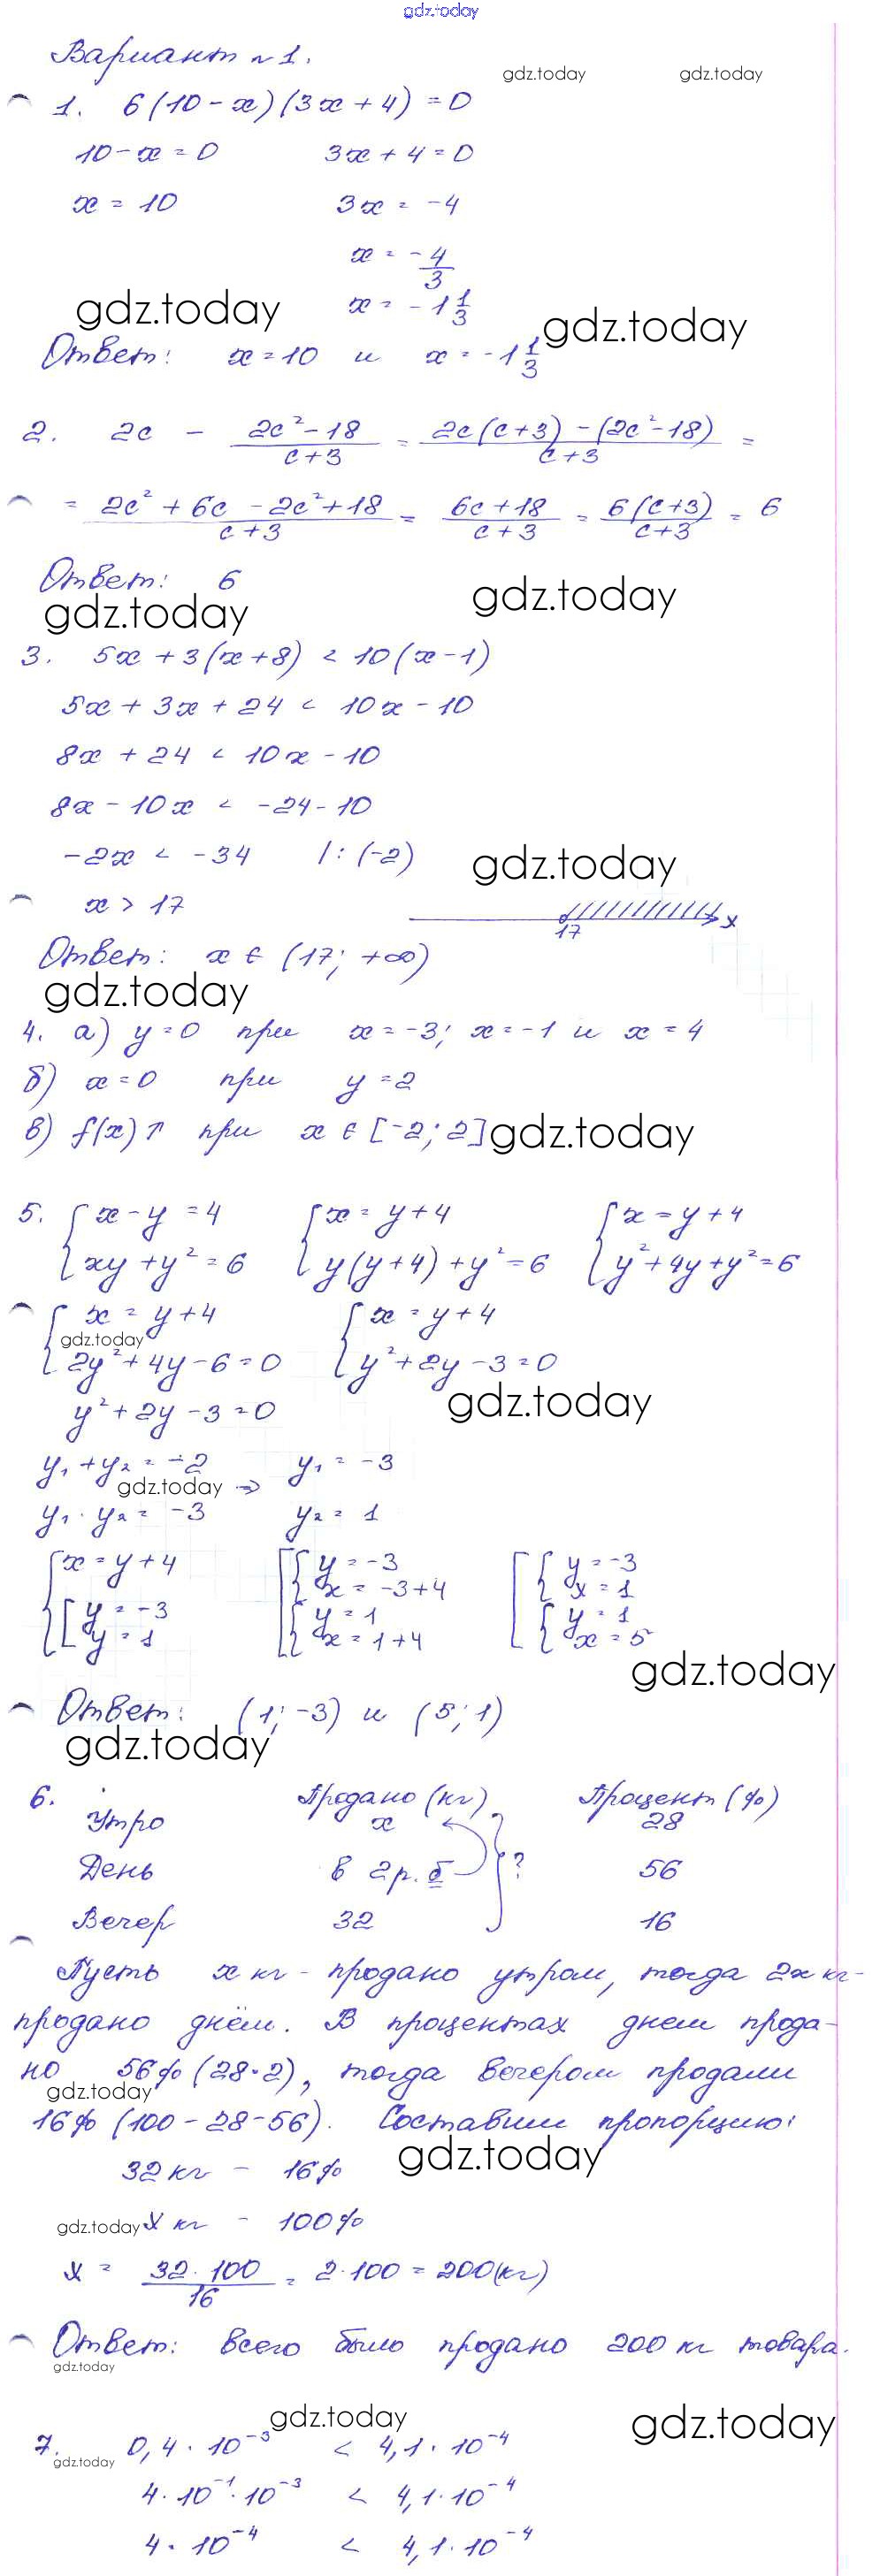 gdz.today
Вариант №1.
gdz.today gdz.today
1. 6(10-x)(3x+4)=0
10-x=0 3x+4=0
x=10 3x=-4
x=-4/3
gdz.today x=-1 1/3 gdz.today
Ответ: x=10 и x=-1 1/3
2. 2c - (2c²-18)/(c+3) = (2c(c+3)-(2c²-18))/(c+3) =
= (2c²+6c-2c²+18)/(c+3) = (6c+18)/(c+3) = 6(c+3)/(c+3) = 6
Ответ: 6
gdz.today gdz.today
3. 5x+3(x+8) < 10(x-1)
5x+3x+24 < 10x-10
8x+24 < 10x-10
8x-10x < -24-10
-2x < -34 |:(-2) gdz.today
x > 17
17 x
Ответ: x ∈ (17; +∞)
gdz.today
4. а) y=0 при x=-3; x=-1 и x=4
б) x=0 при y=2
в) f(x)↑ при x ∈ [-2; 2] gdz.today
5. { x-y=4 { x=y+4 { x=y+4
{ xy+y²=6 { y(y+4)+y²=6 { y²+4y+y²=6
{ x=y+4 { x=y+4
gdz.today
{ 2y²+4y-6=0 { y²+2y-3=0
y²+2y-3=0 gdz.today
y₁+y₂=-2 y₁=-3
gdz.today ⇒
y₁·y₂=-3 y₂=1
{ x=y+4 [ { y=-3 [ { y=-3
{ x=-3+4 { x=1
{ [ y=-3 { y=1 { y=1
y=1 { x=1+4 { x=5
gdz.today
Ответ: (1; -3) и (5; 1)
gdz.today
6. Продано (кг) Процент (%)
Утро x 28
День в 2 р. б } ? 56
Вечер 32 16
Пусть x кг - продано утром, тогда 2x кг-
продано днём. В процентах днем прода-
но 56% (28·2), тогда вечером продали
gdz.today
16% (100-28-56). Составим пропорцию:
gdz.today
32 кг - 16%
gdz.today x кг - 100%
x = (32·100)/16 = 2·100 = 200 (кг)
Ответ: всего было продано 200 кг товара.
gdz.today
gdz.today gdz.today
7. 0,4·10⁻³ < 4,1·10⁻⁴
gdz.today
4·10⁻¹·10⁻³ < 4,1·10⁻⁴
4·10⁻⁴ < 4,1·10⁻⁴